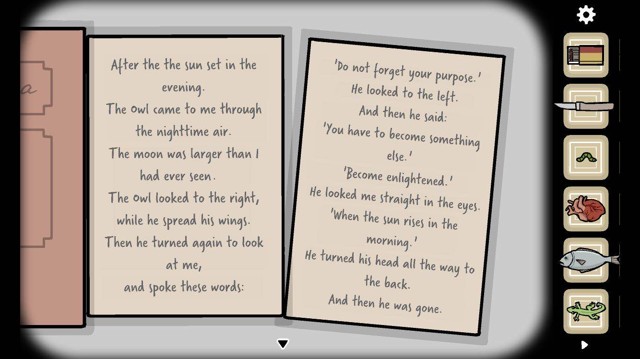 a
After the the sun set in the
evening.
The Owl came to me through
the nighttime air.
The moon was larger than I
had ever seen.
The Owl looked to the right,
while he spread his wings.
Then he turned again to look
at me,
and spoke these words:
'Do not forget your purpose.'
He looked to the left.
And then he said:
'You have to become something
else.'
'Become enlightened.'
He looked me straight in the eyes.
'When the sun rises in the
morning.'
He turned his head all the way to
the back.
And then he was gone.